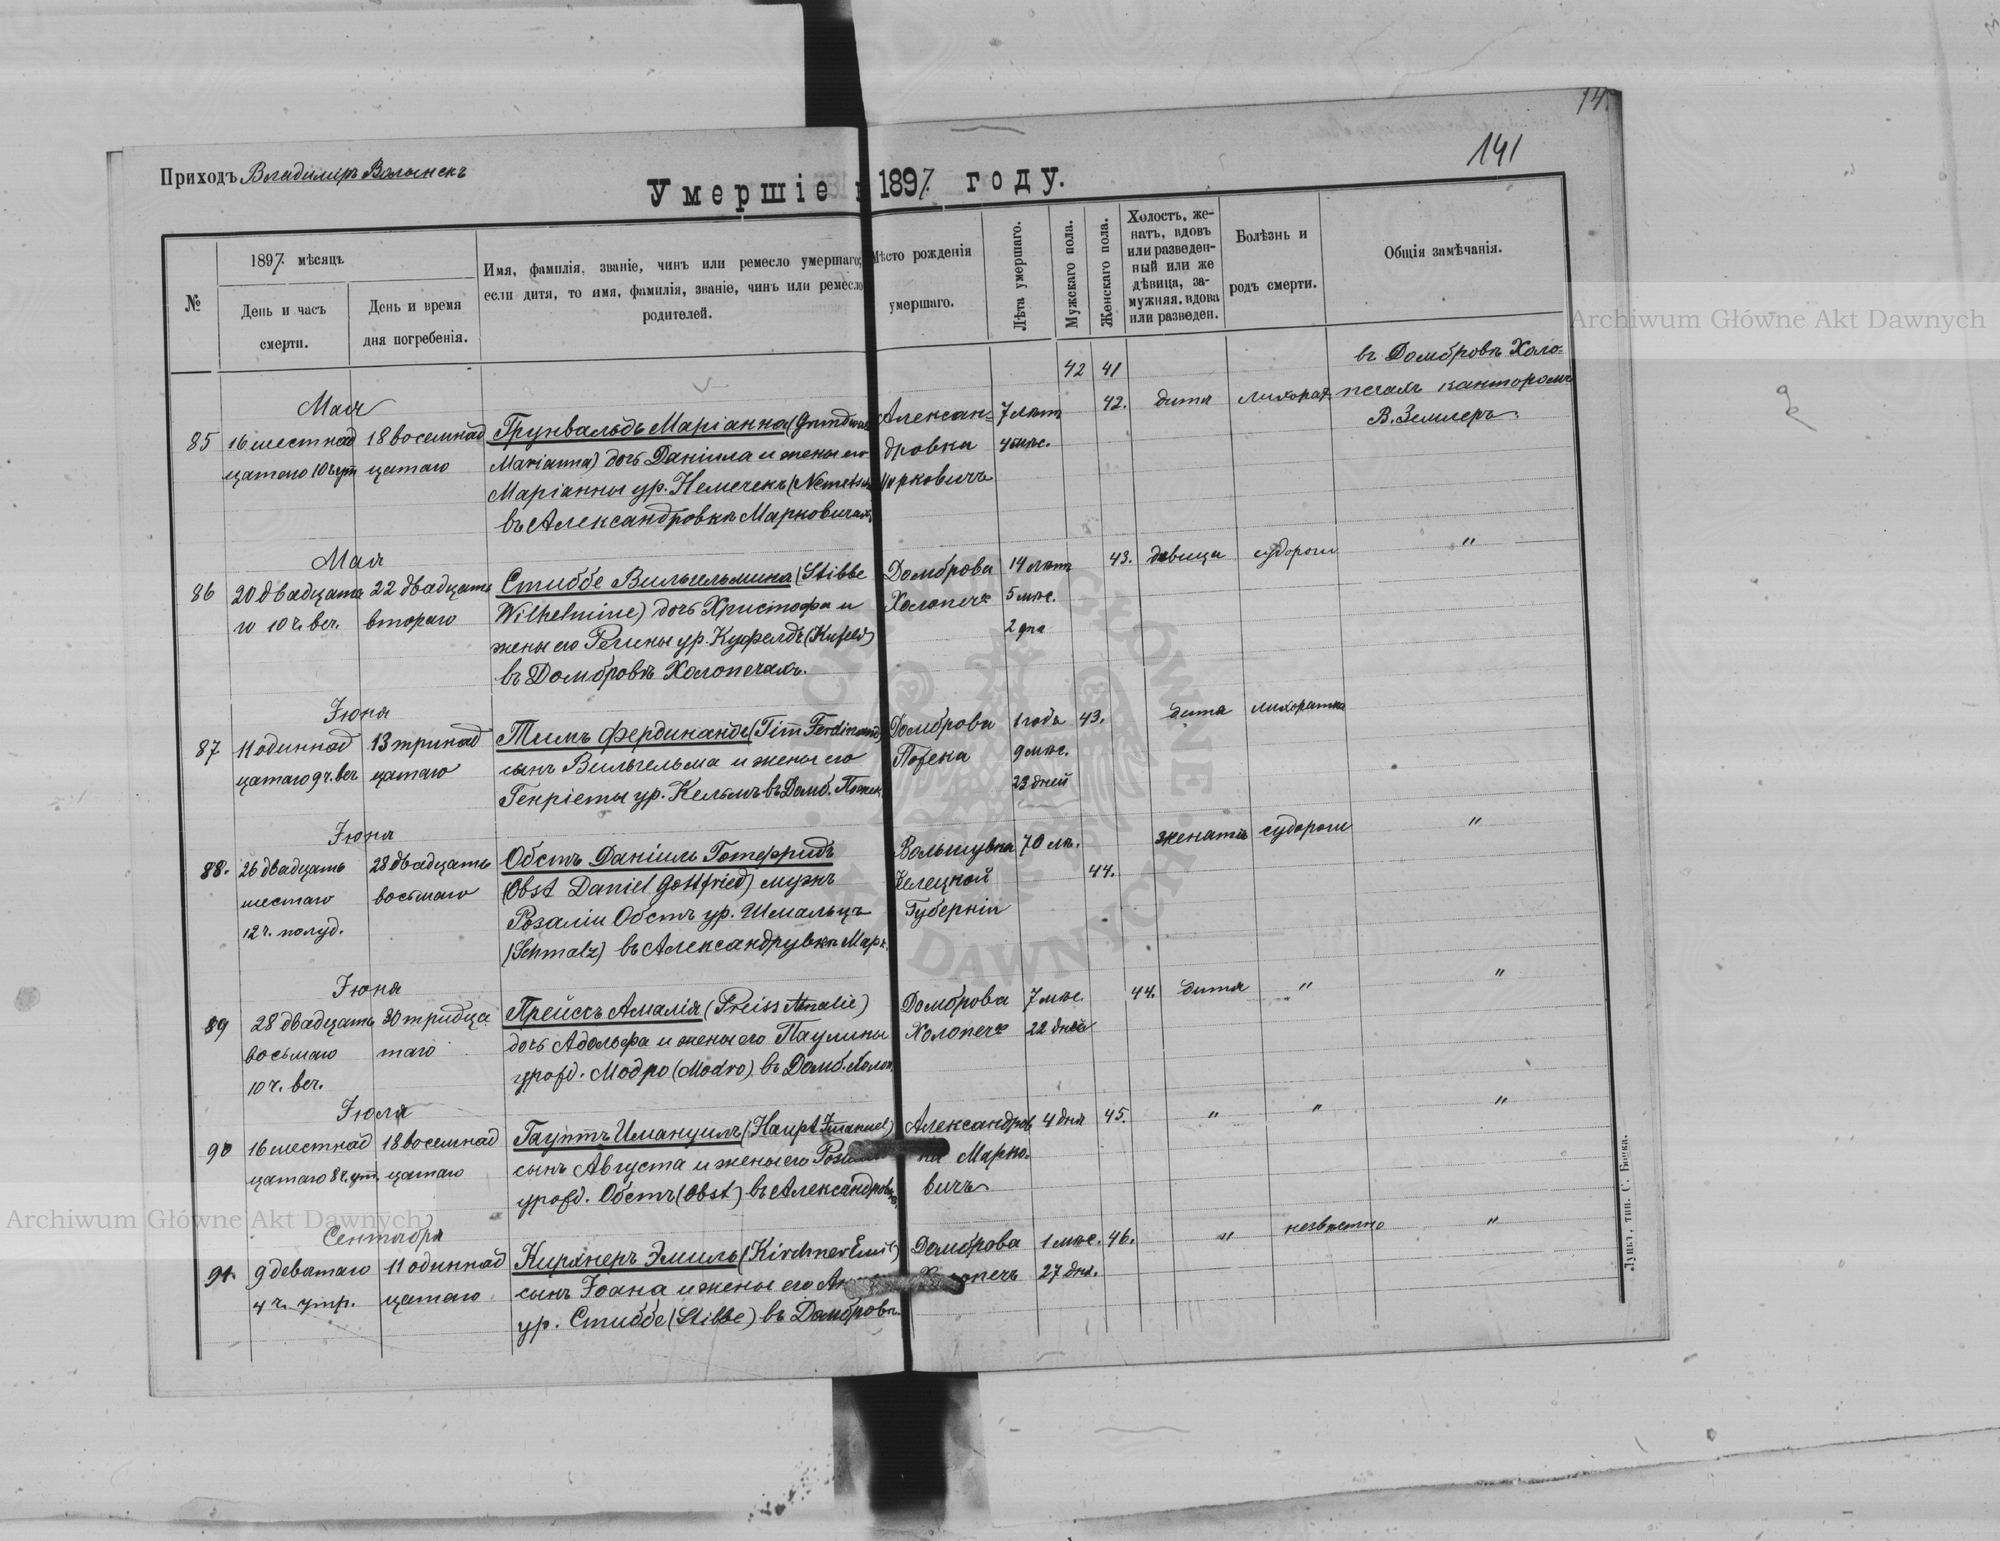 14
141
Приходъ Владимиръ Волынскъ
Умершіе 1897 году.
№
1897 мѣсяцъ
День и часъ
смерти.
День и время
дня погребенія.
Имя, фамилія, званіе, чинъ или ремесло умершаго;
если дитя, то имя, фамилія, званіе, чинъ или ремесло
родителей.
Мѣсто рожденія
умершаго.
Лѣта умершаго.
Мужскаго пола.
Женскаго пола.
Холостъ, же-
натъ, вдовъ
или разведен-
ный или же
дѣвица, за-
мужняя, вдова
или разведен.
Болѣзнь и
родъ смерти.
Общія замѣчанія.
Archiwum Główne Akt Dawnych
42 41
въ Домбровѣ Холо-
печахъ канторомъ
В. Земмеръ.
Мая
85 16 шестнад 18 восемнад Грунвальдъ Маріанна Алексан- 7 лѣтъ 42. дитя
цатаго 10 ч. ут. цатаго Marianna) дочь Даніила и жены его дровка 4 мѣс.
Маріанны ур. Немечекъ Марковичъ
въ Александровкѣ Марковичахъ
Мая
86 20 двадцата 22 двадцать Стиббе Вильгельмина (Stibbe Домброва 14 лѣтъ 43. дѣвица судороги "
го 10 ч. веч. втораго Wilhelmine) дочь Христофа и Холопечъ 5 мѣс.
жены его Регины ур. Куфелдъ (Kufeld) 2 дня
въ Домбровѣ Холопечахъ.
Іюня
87 11 одиннад 13 тринад Тимъ Фердинандъ (Timm Ferdinand) Домброва 1 годъ 43. дитя лихорадка
цатаго 9 ч. веч. цатаго сынъ Вильгельма и жены его 9 мѣс.
Генріеты ур. Кельмъ въ Домб. 23 дней
Іюня
88. 26 двадцать 28 двадцать Обстъ Даніилъ Готфридъ 70 лѣ. женатъ судороги "
шестаго восьмаго (Obst Daniel Gottfried) мужъ Келецкой 44.
12 ч. полуд. Розаліи Обстъ ур. Шмальцъ Губерніи
(Schmalz) въ Александрувкѣ Марк.
Іюня
89 28 двадцать 30 тридца Прейсъ Амалія (Preiss Amalie) Домброва 7 мѣс. 44. дитя " "
восьмаго таго дочь Адольфа и жены его Паулины Холопечъ 22 дней
10 ч. веч. урожд. Модро (Modro) въ Домб. Холоп.
Іюля
90 16 шестнад 18 восемнад Гауптъ Имануилъ (Haupt Imanuel) Александров 4 дня 45. " " "
цатаго 8 ч. ут. цатаго сынъ Августа и жены его ка Марко-
урожд. Обстъ (Obst) въ Александровкѣ вичъ
Archiwum Główne Akt Dawnych
Сентября
91. 9 девятаго 11 одиннад Кирхнеръ Эмиль (Kirchner Emil) Домброва 1 мѣс. 46. " неизвѣстно "
4 ч. утр. цатаго сынъ Іоана и жены его Холопечъ 27 дня.
ур. Стиббе (Stibbe) въ Домбровѣ
Луцкъ, тип. С. Бокса.